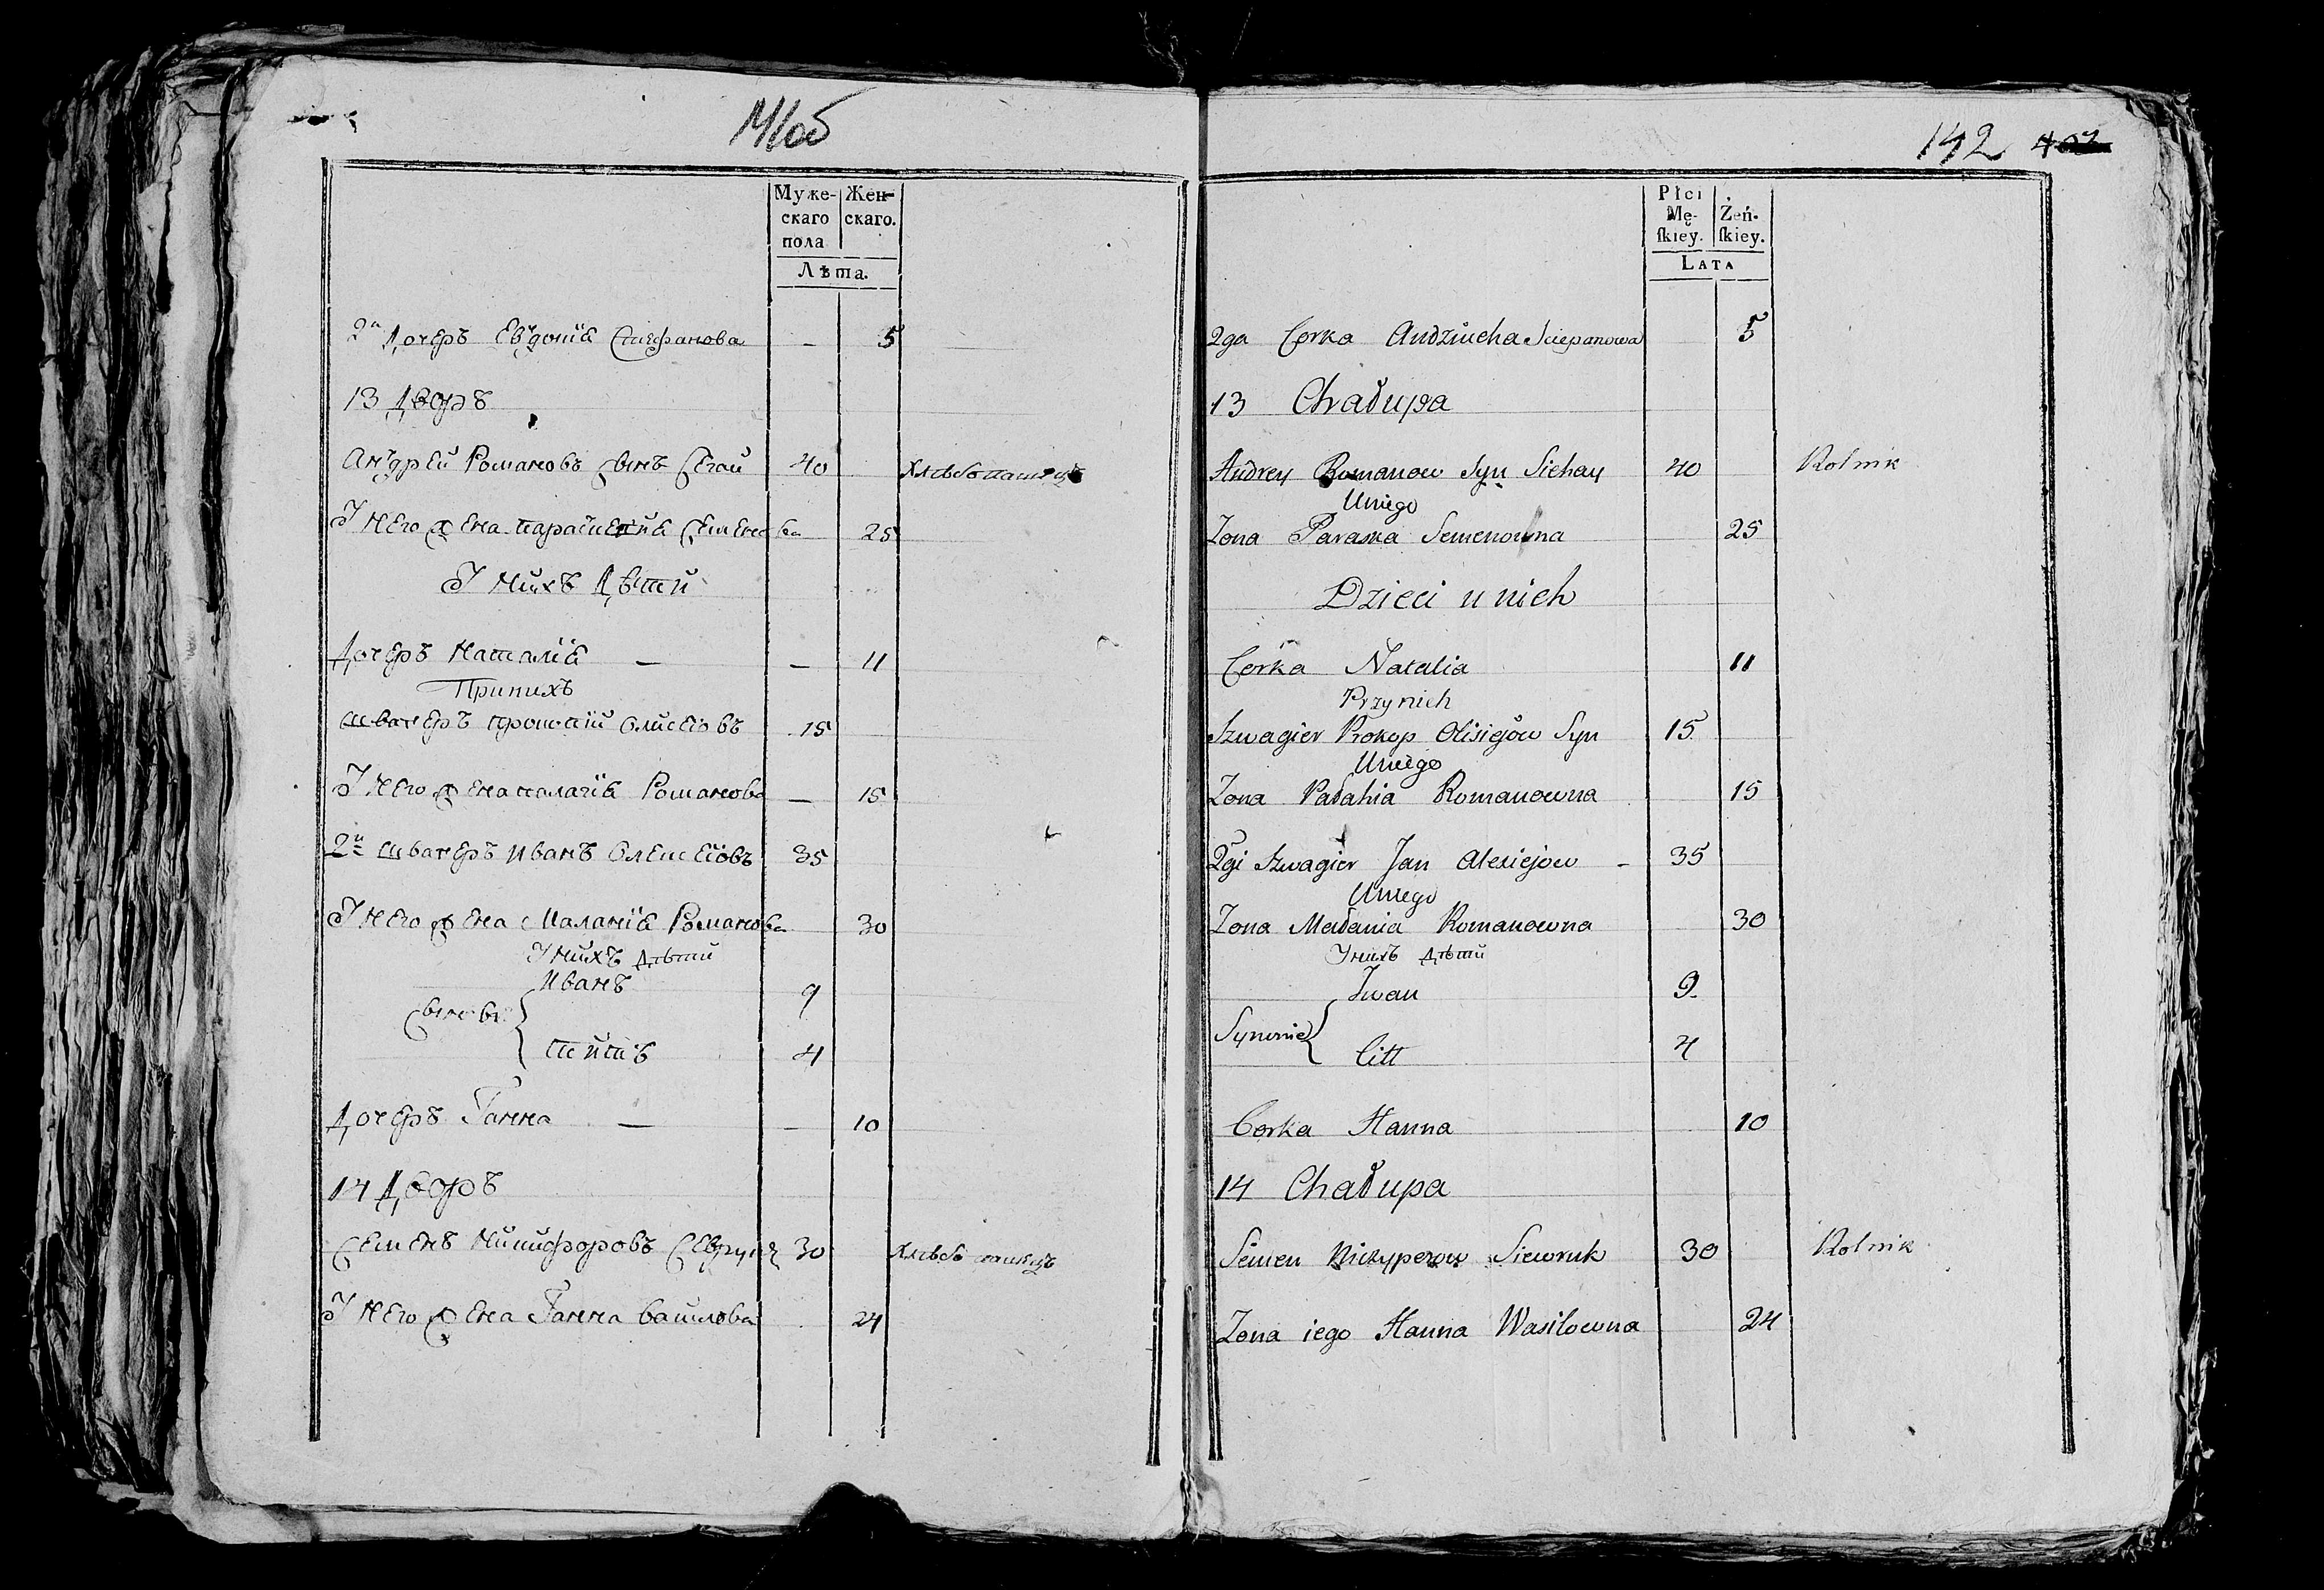 141об
Муже- Жен-
скаго скаго.
пола
Лѣта.
2я Дочеръ Евдокия Стефанова — 5
13 Дворъ
Андрей Романовъ сынъ Сегай 40 Хлебопашецъ
У него жена Параскевия Семенова 25
У нихъ Дѣти
Дочеръ Наталия — — 11
При нихъ
швагеръ Прокопий Олисеовъ 15
У него жена Палагия Романова — 15
2й швагеръ Иванъ Олексеовъ 35
У него жена Малания Романова 30
У нихъ дѣти
Иванъ 9
Сыновья
Титъ 4
Дочеръ Ганна — — 10
14 Дворъ
Семенъ Никифоровъ Севрукъ 30 Хлебопашецъ
У него жена Ганна Василова 24
142
Płci
Mę- Żeń-
ſkiey. ſkiey.
LATA
2ga Corka Audziucha Sciepanowa 5
13 Chałupa
Andrey Romanow Syn Siehay 40 Rolnik
U niego
Zona Paraska Semenowna 25
Dzieci u nich
Corka Natalia 11
Przy nich
Szwagier Prokop Olisiejow Syn 15
U niego
Zona Pałahia Romanowna 15
2gi Szwagier Jan Alexiejow - 35
U niego
Zona Mełania Romanowna 30
У нихъ дѣти
Iwan 9
Synowie
Citt 4
Corka Hanna 10
14 Chałupa
Semen Nickyperow Siewruk 30 Rolnik
Zona iego Hanna Wasilowna 24